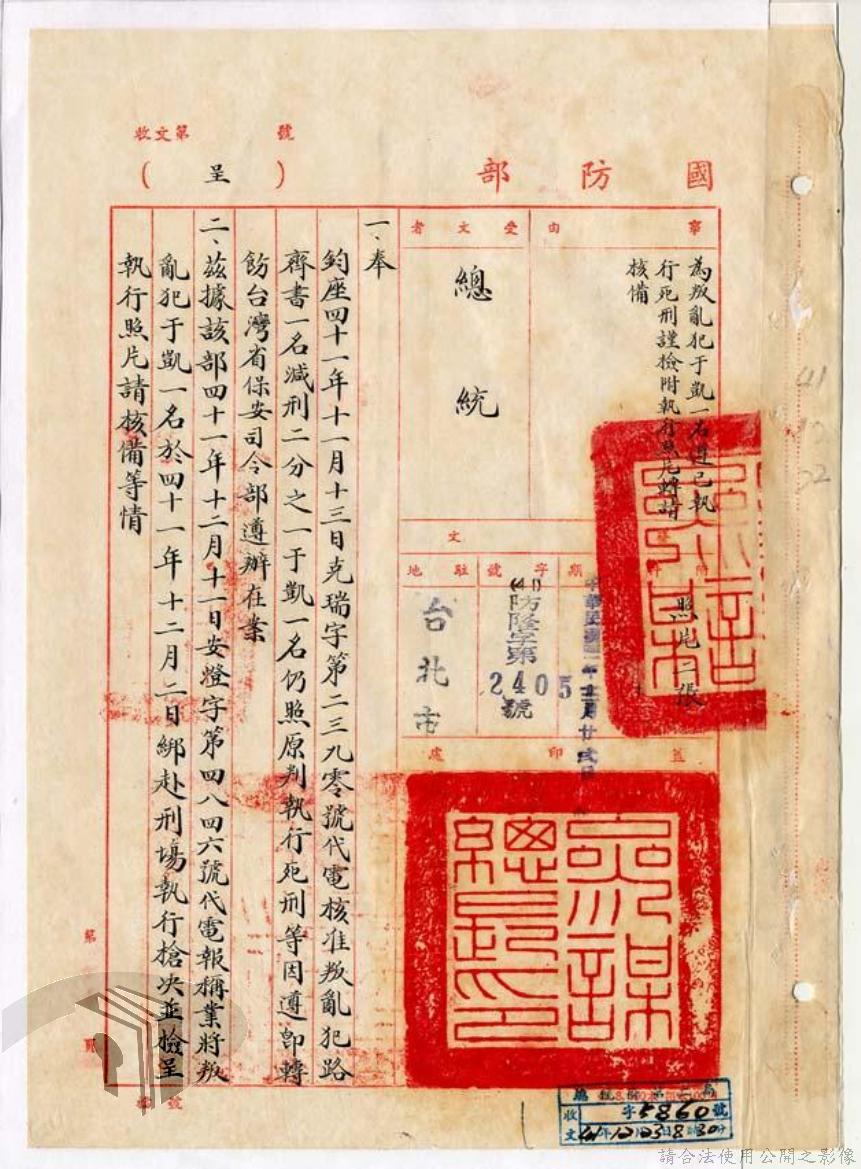 國防部
(呈)
收文第 號
事由
為叛亂犯于凱一名遵已執
行死刑謹檢附執行照片轉請
核備
受文者
總統
附件
照片二張
文
期
字號
駐地
中華民國四十一年十二月廿弍日
(40)防隆字第2405號
台北市
蓋印處
參謀總長之印
一、奉
鈞座四十一年十一月十三日克瑞字第二三九零號代電核准叛亂犯路
齊書一名減刑二分之一于凱一名仍照原判執行死刑等因遵即轉
飭台灣省保安司令部遵辦在案
二、茲據該部四十一年十二月十一日安澄字第四八四六號代電報稱業將叛
亂犯于凱一名於四十一年十二月二日綁赴刑場執行槍決並檢呈
執行照片請核備等情
第 頁
檔 號
收文
字5860號
41年12月23日8時30分
41
12
22
請合法使用公開之影像